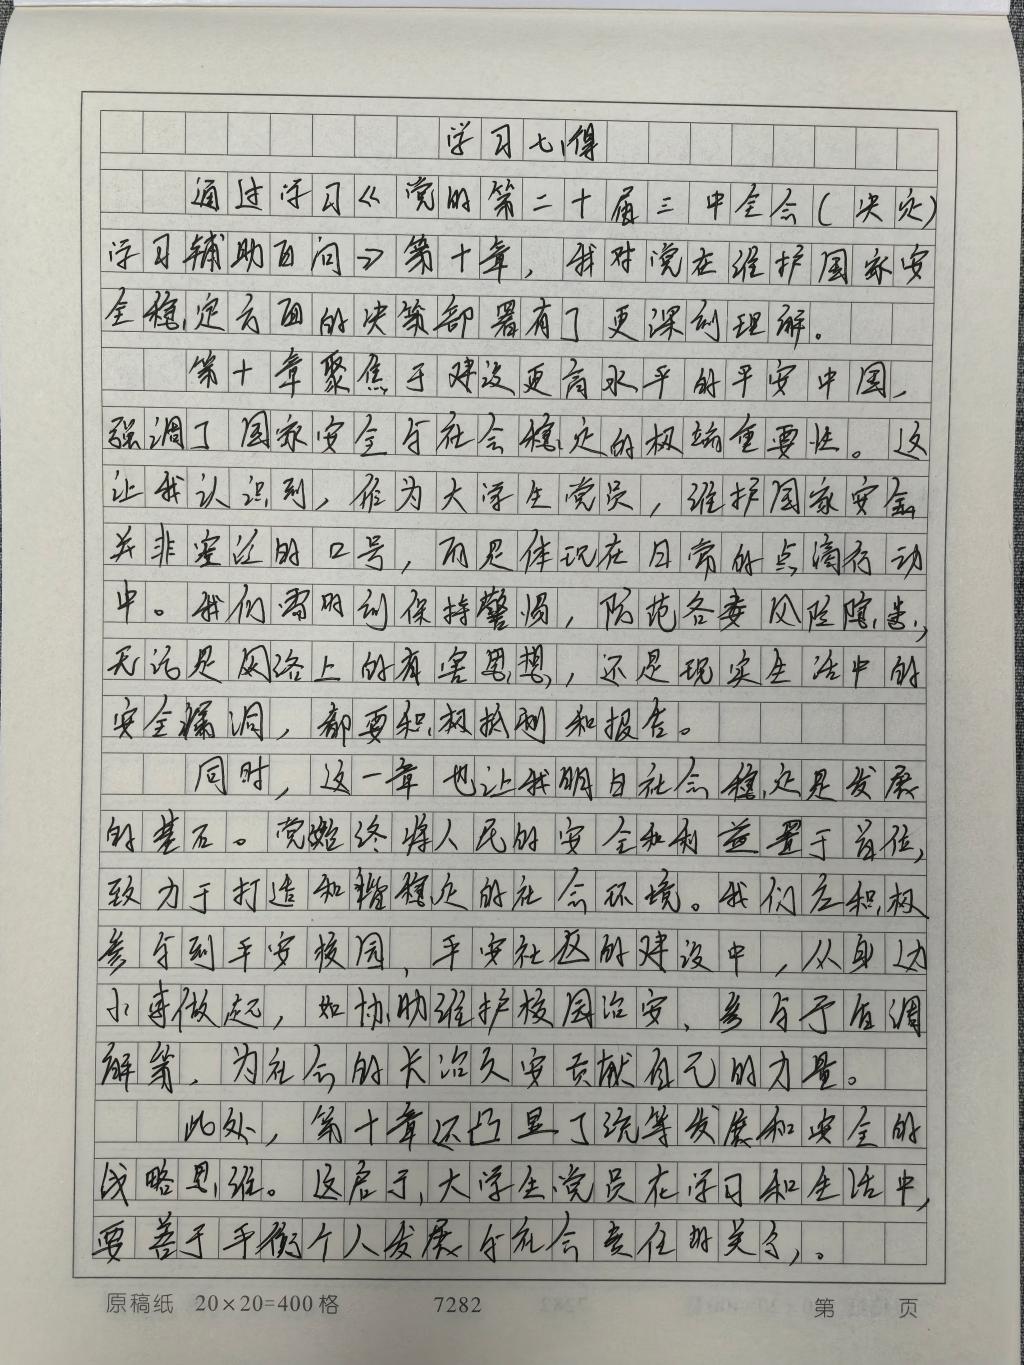 学习心得
通过学习《党的第二十届三中全会(决定)
学习辅助百问》第十章，我对党在维护国家安
全稳定方面的决策部署有了更深刻理解。
第十章聚焦于建设更高水平的平安中国，
强调了国家安全与社会稳定的极端重要性。这
让我认识到，作为大学生党员，维护国家安全
并非空泛的口号，而是体现在日常的点滴行动
中。我们需时刻保持警惕，防范各类风险隐患，
无论是网络上的有害思想，还是现实生活中的
安全漏洞，都要积极抵制和报告。
同时，这一章也让我明白社会稳定是发展
的基石。党始终将人民的安全和利益置于首位，
致力于打造和谐稳定的社会环境。我们应积极
参与到平安校园、平安社区的建设中，从身边
小事做起，如协助维护校园治安、参与矛盾调
解等，为社会的长治久安贡献自己的力量。
此外，第十章还凸显了统筹发展和安全的
战略思维。这启示，大学生党员在学习和生活中，
要善于平衡个人发展与社会责任的关系，。
原稿纸 20×20=400格 7282 第 页